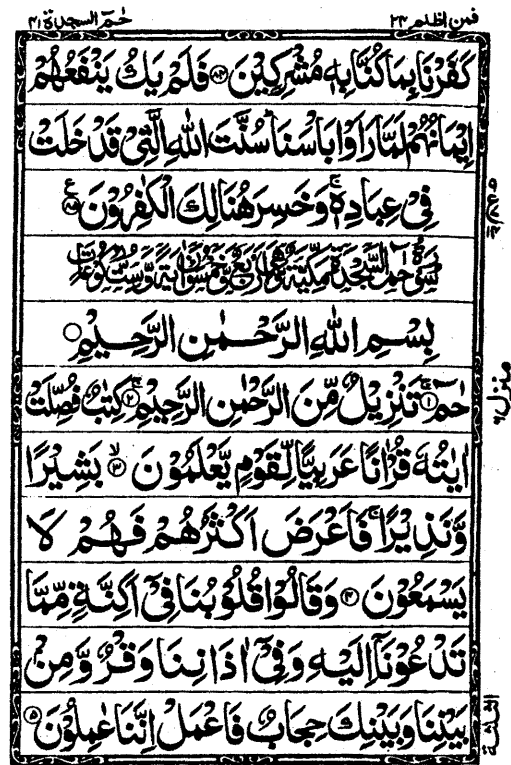 فمن اظلم ٢٤ حٰمٓ السجدة ٤١
كَفَرْنَا بِمَا كُنَّا بِهٖ مُشْرِكِيْنَ ﴿٨٤﴾ فَلَمْ يَكُ يَنْفَعُهُمْ
اِيْمَانُهُمْ لَمَّا رَاَوْا بَاْسَنَا ؕ سُنَّتَ اللّٰهِ الَّتِيْ قَدْ خَلَتْ
فِيْ عِبَادِهٖ ۚ وَخَسِرَ هُنَالِكَ الْكٰفِرُوْنَ ﴿٨٥﴾ ع
سُوْرَةُ حٰمٓ السَّجْدَةِ مَكِّيَّةٌ وَّهِيَ اَرْبَعٌ وَّخَمْسُوْنَ اٰيَةً وَّسِتُّ رُكُوْعَاتٍ
بِسْمِ اللّٰهِ الرَّحْمٰنِ الرَّحِيْمِ
حٰمٓ ﴿١﴾ۚ تَنْزِيْلٌ مِّنَ الرَّحْمٰنِ الرَّحِيْمِ ﴿٢﴾ۚ كِتٰبٌ فُصِّلَتْ
اٰيٰتُهٗ قُرْاٰنًا عَرَبِيًّا لِّقَوْمٍ يَّعْلَمُوْنَ ﴿٣﴾ۙ بَشِيْرًا
وَّنَذِيْرًا ۚ فَاَعْرَضَ اَكْثَرُهُمْ فَهُمْ لَا
يَسْمَعُوْنَ ﴿٤﴾ وَقَالُوْا قُلُوْبُنَا فِيْٓ اَكِنَّةٍ مِّمَّا
تَدْعُوْنَآ اِلَيْهِ وَفِيْٓ اٰذَانِنَا وَقْرٌ وَّمِنْۢ
بَيْنِنَا وَبَيْنِكَ حِجَابٌ فَاعْمَلْ اِنَّنَا عٰمِلُوْنَ ﴿٥﴾
منزل ٦
الثلثة